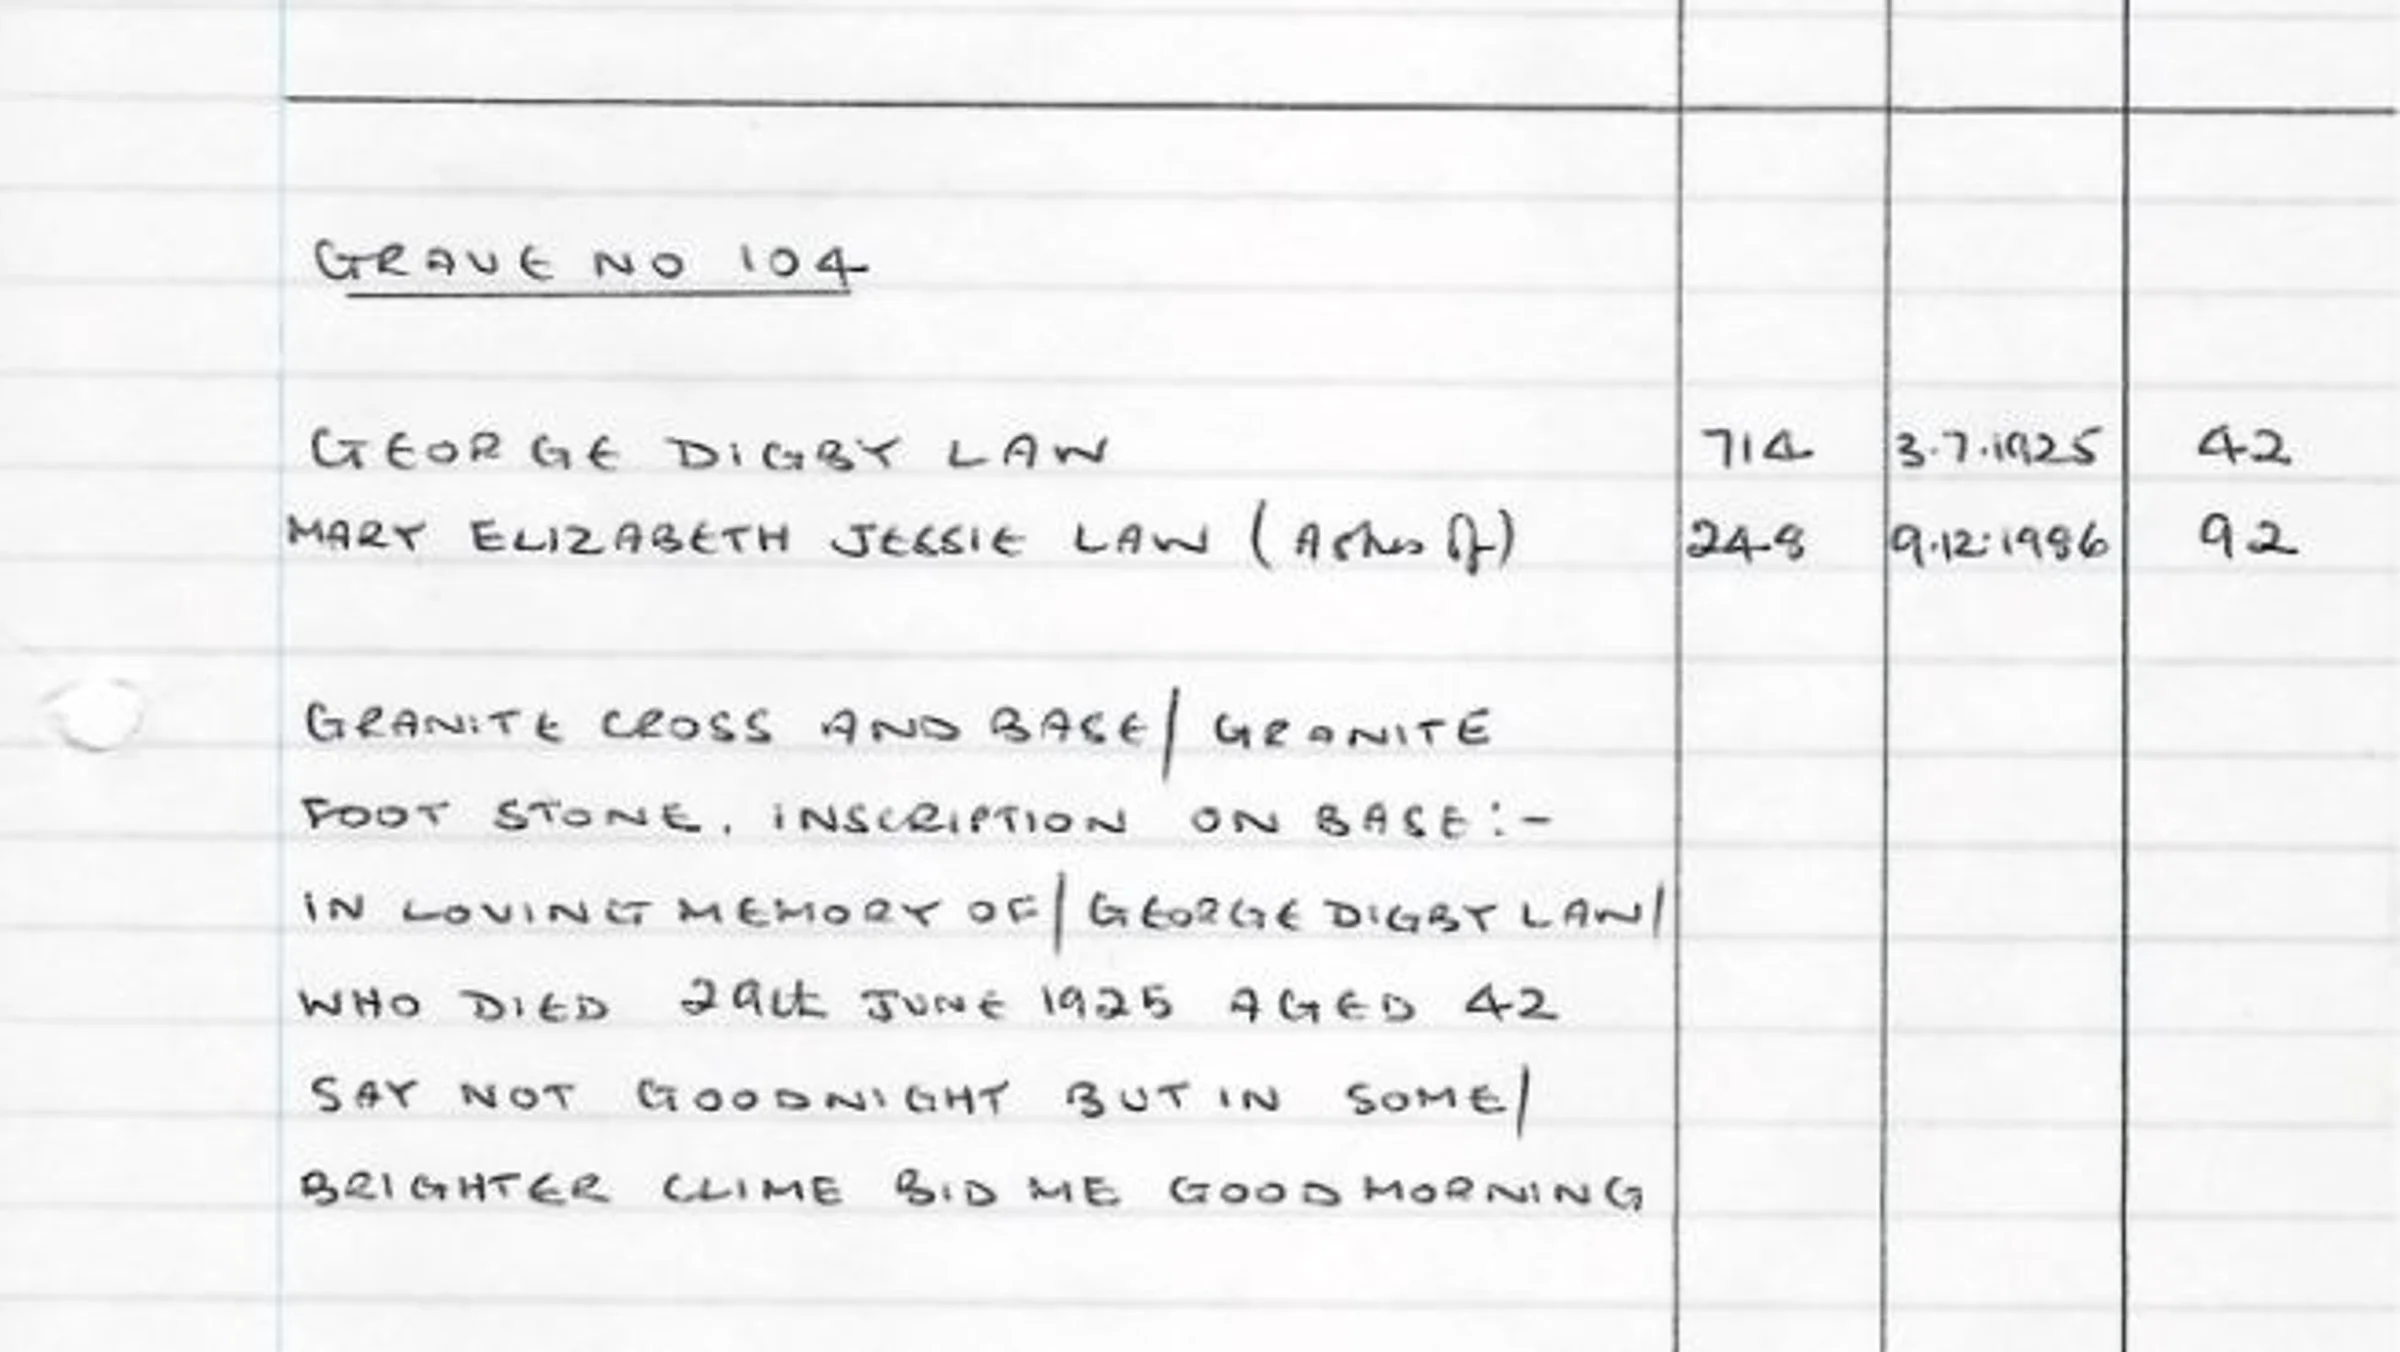 GRAVE NO 104
GEORGE DIGBY LAW 714 3.7.1925 42
MARY ELIZABETH JESSIE LAW (Ashes of) 248 9.12.1986 92
GRANITE CROSS AND BASE/ GRANITE
FOOT STONE. INSCRIPTION ON BASE:-
IN LOVING MEMORY OF/ GEORGE DIGBY LAW/
WHO DIED 29th JUNE 1925 AGED 42
SAY NOT GOODNIGHT BUT IN SOME/
BRIGHTER CLIME BID ME GOOD MORNING